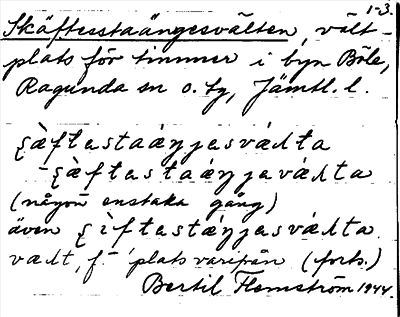 1-3.
Skäftesstaängesvälten, vält-
plats för timmer i byn Böle,
Ragunda sn o. tg, Jämtl. l.
ʂæ̀ftastaáŋjasváɹta
-ʂæ̀ftastaáŋjaváɹta
(någon enstaka gång)
även ʂìftastáŋjasváɹta
væɹt, f. plats varifrån (forts.)
Bertil Flemström 1944.